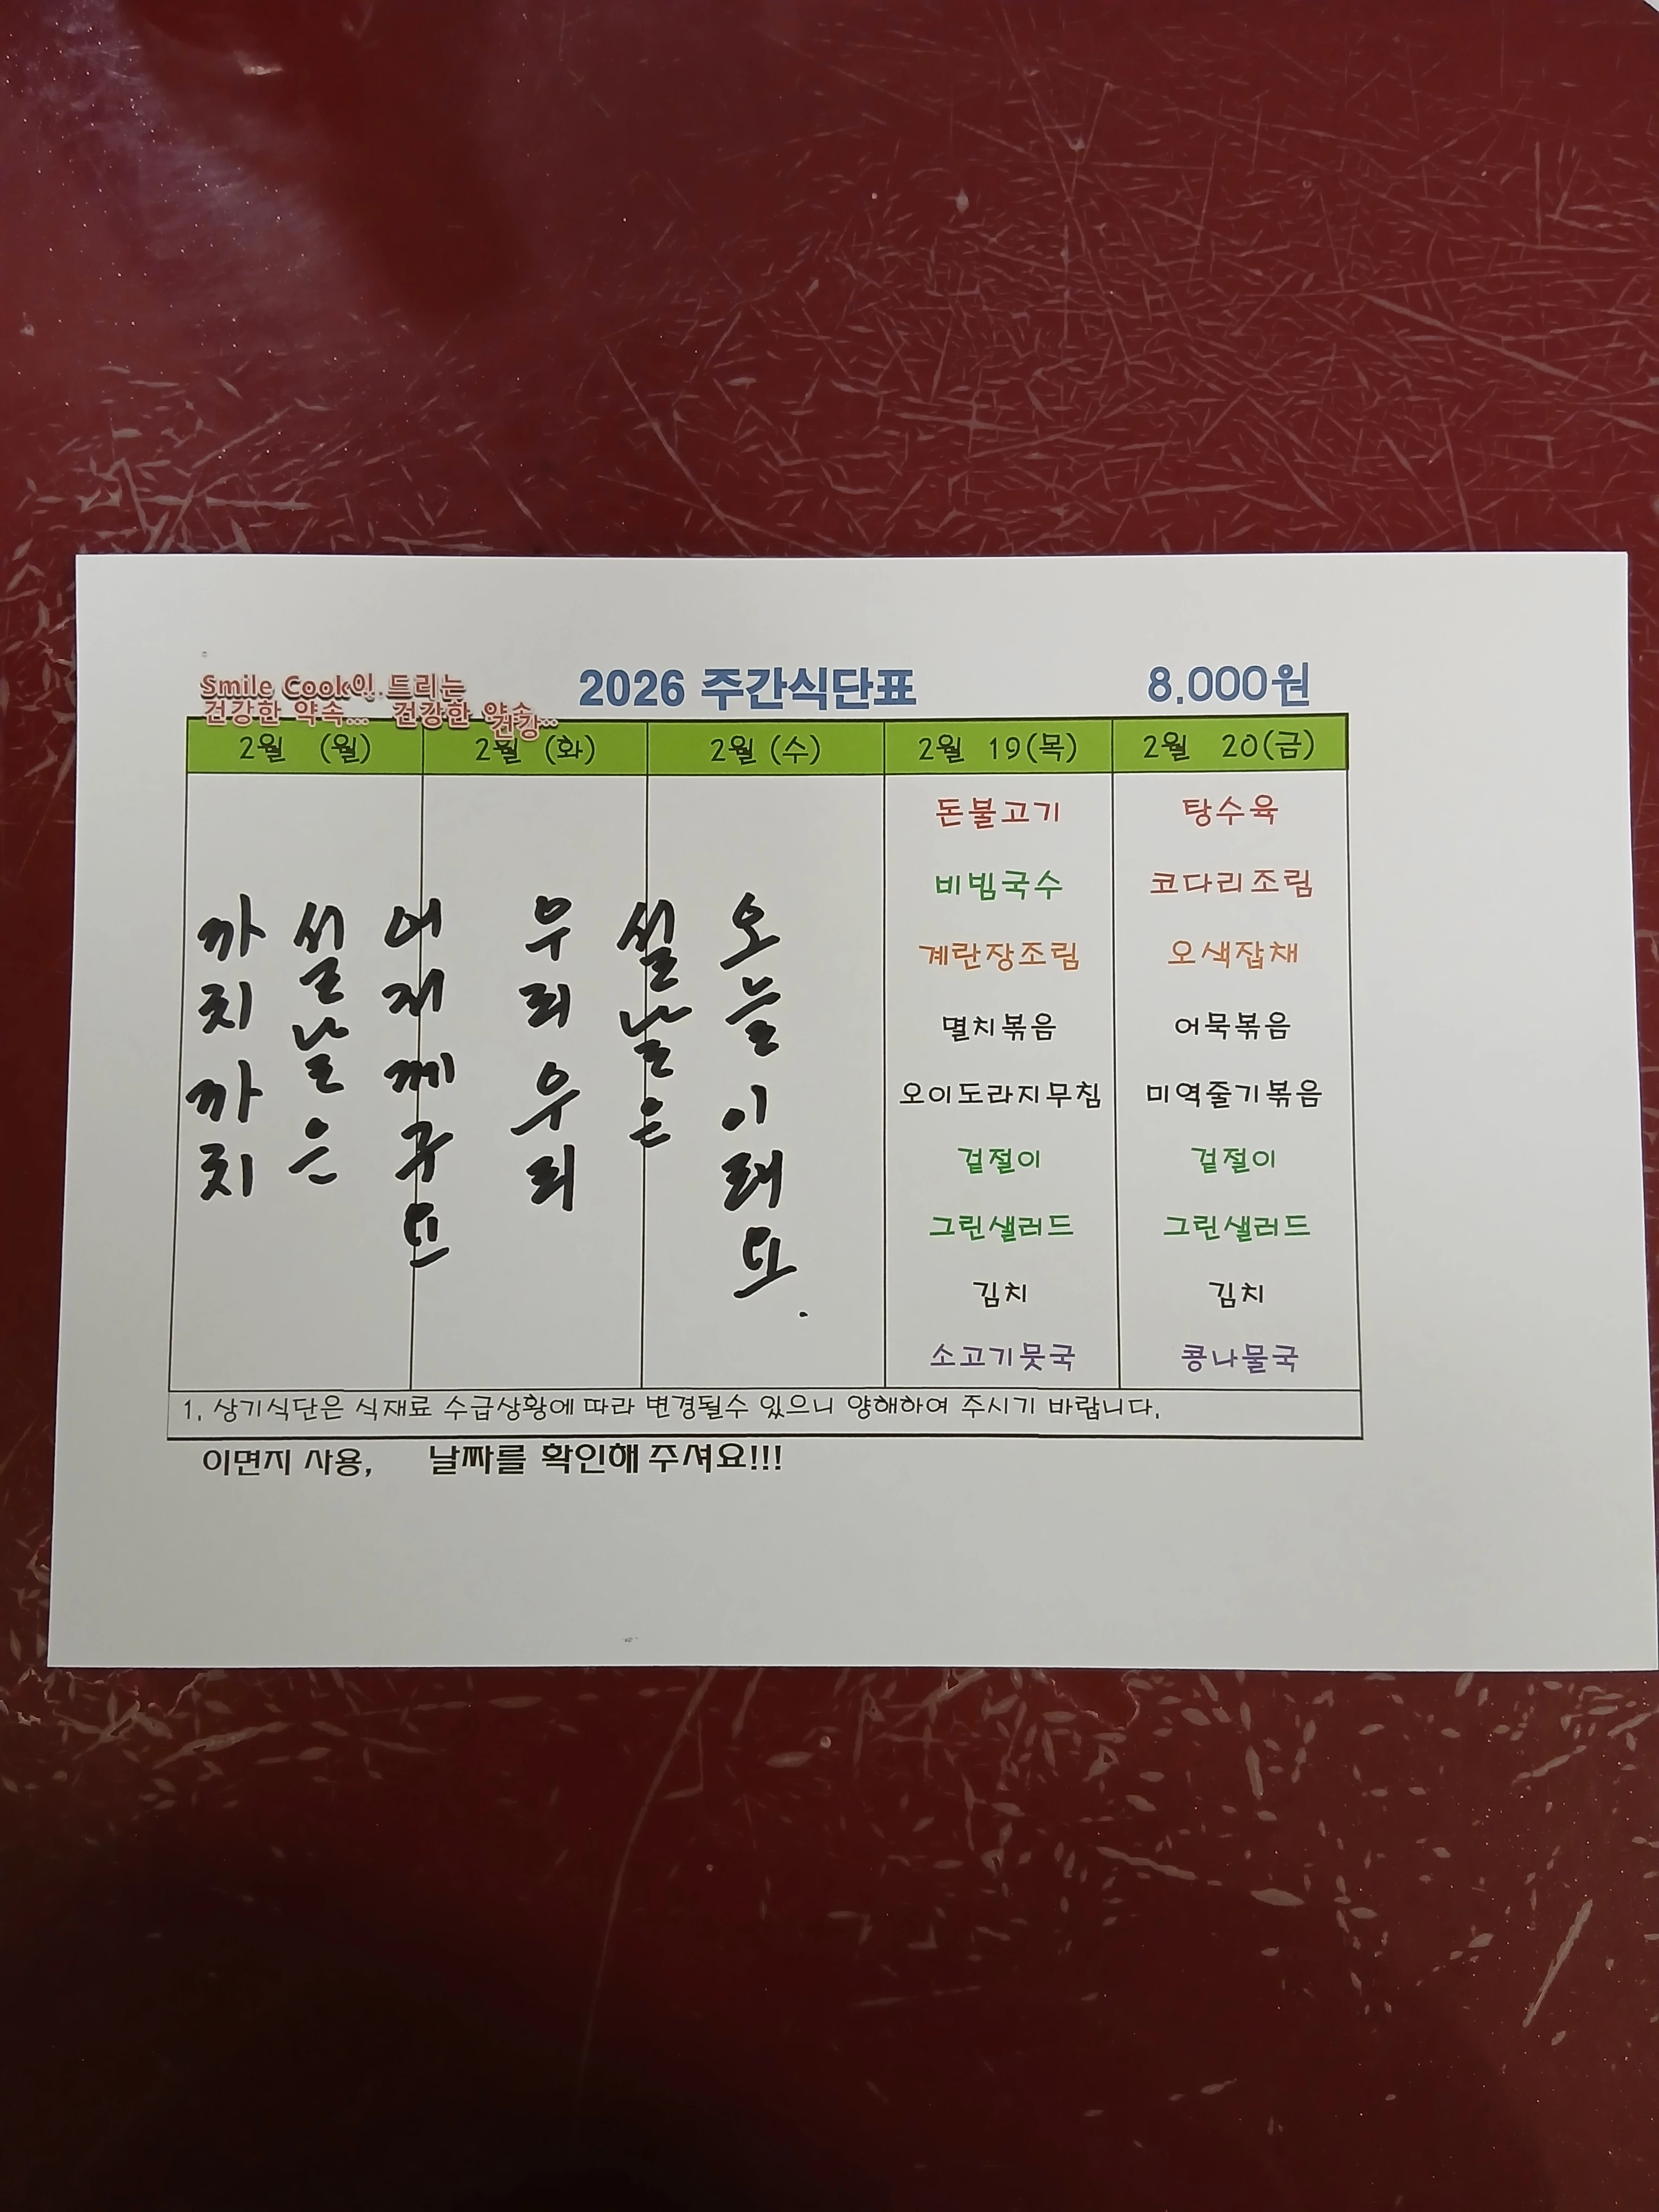 Smile Cook이 드리는
건강한 약속... 건강한 약속
건강...
2026 주간식단표
8.000원
2월 (월)
2월 (화)
2월 (수)
2월 19(목)
2월 20(금)
까치까치
설날은
어저께구요
우리우리
설날은
오늘이래요.
돈불고기
비빔국수
계란장조림
멸치볶음
오이도라지무침
겉절이
그린샐러드
김치
소고기뭇국
탕수육
코다리조림
오색잡채
어묵볶음
미역줄기볶음
겉절이
그린샐러드
김치
콩나물국
1. 상기식단은 식재료 수급상황에 따라 변경될수 있으니 양해하여 주시기 바랍니다.
이면지 사용, 날짜를 확인해 주셔요!!!